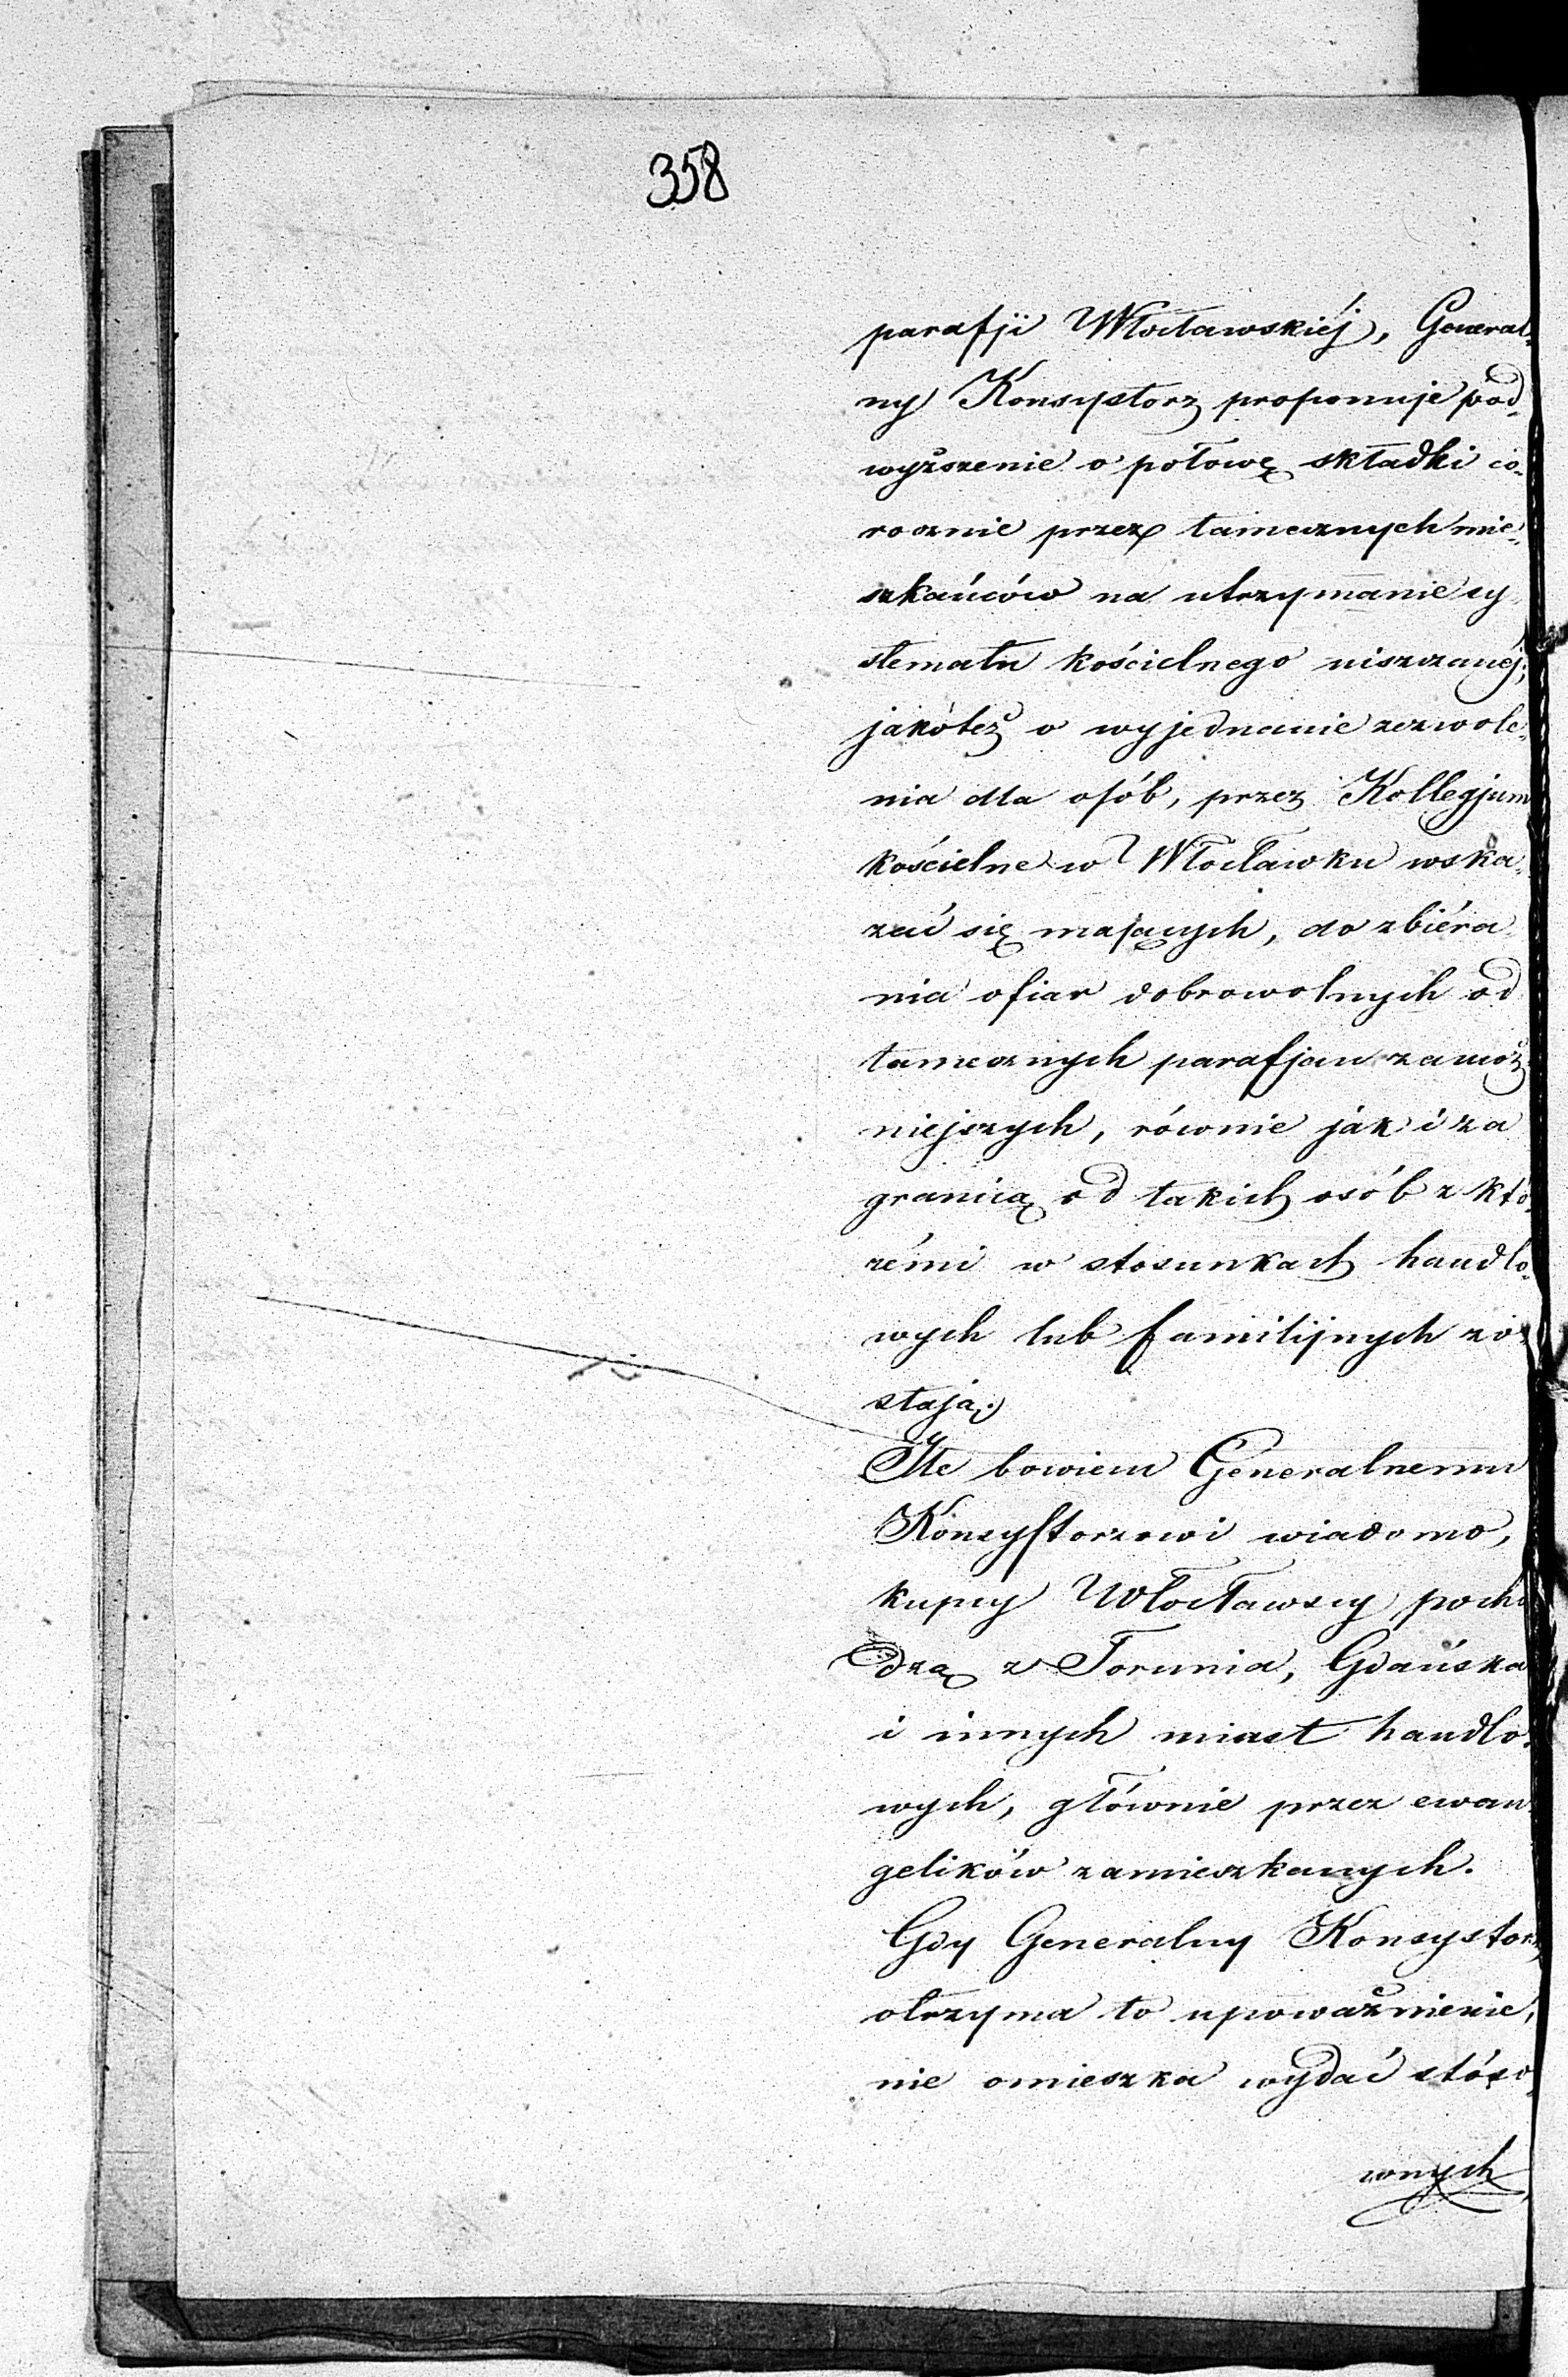 358
parafji Włocławskiéj, General-
ny Konsystorz proponuje pod-
wyższenie o połowę składki co-
rocznie przez tamecznych mie-
szkańców na utrzymanie sy-
stematu kościelnego uiszczanéj,
jakótéż o wyjednanie zezwole-
nia dla osób, przez Kollegjum
kościelne w Włocławku wska-
zać się mających, do zbiéra-
nia ofiar dobrowolnych od
tamecznych parafjan zamoż-
niejszych, równie jak i za
granicą od takich osób z któ-
rémi w stosunkach handlo-
wych lub familijnych zo-
stają.
Ile bowiem Generalnemu
Konsystorzowi wiadomo,
kupcy Włocławscy pocho
dzą z Torunia, Gdańska
i innych miast handlo-
wych, głównie przez ewan-
gelików zamieszkanych.
Gdy Generalny Konsystorz
otrzyma to upoważnienie,
nie omieszka wydać stóso-
wnych